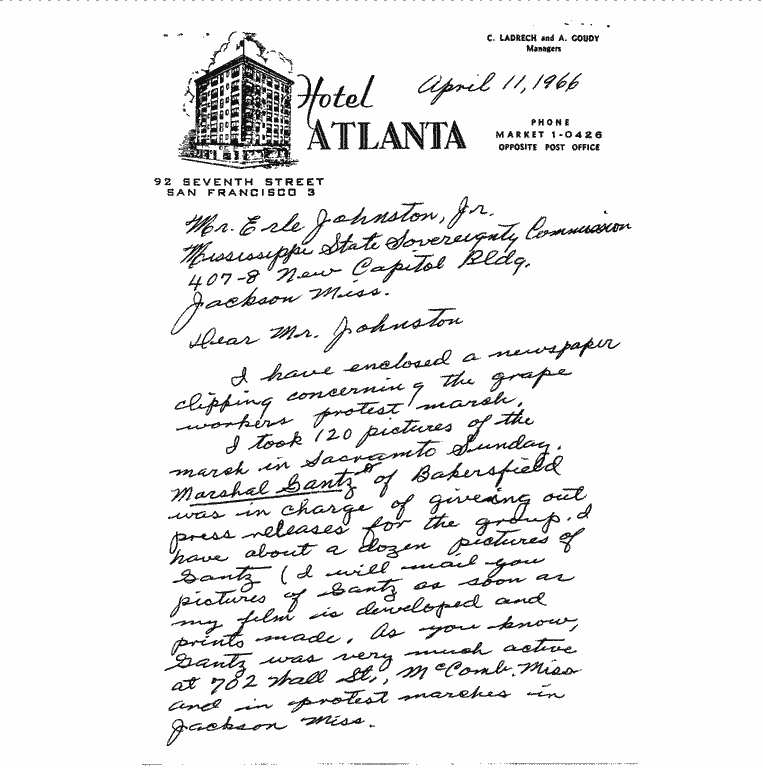 C. LADRECH and A. GOUDY
Managers
Hotel
ATLANTA
April 11, 1966
PHONE
MARKET 1-0426
OPPOSITE POST OFFICE
92 SEVENTH STREET
SAN FRANCISCO 3
Mr. Erle Johnston, Jr.
Mississippi State Sovereignty Commission
407-8 New Capitol Bldg.
Jackson Miss.
Dear Mr. Johnston
I have enclosed a newspaper
clipping concerning the grape
workers protest march.
I took 120 pictures of the
march in Sacramto Sunday.
Marshal Gantz of Bakersfield
was in charge of giveing out
press releases for the group. I
have about a dozen pictures of
Gantz (I will mail you
pictures of Gantz as soon as
my film is developed and
prints made. As you know,
Gantz was very much active
at 702 Wall St., McComb. Miss
and in protest marches in
Jackson Miss.